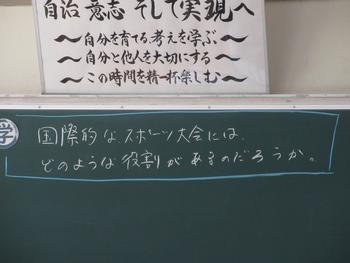 自治 意志 そして実現へ
～自分を育てる考えを学ぶ～
～自分と他人を大切にする～
～この時間を精一杯楽しむ～
学
国際的なスポーツ大会には、
どのような役割があるのだろうか。